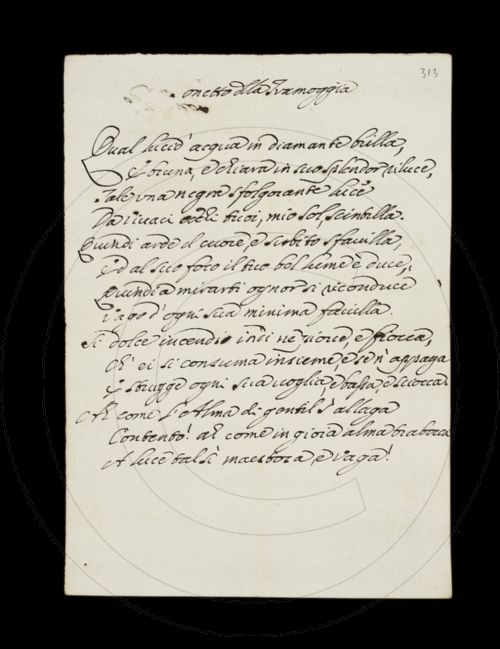 313
Sonetto della Tramoggia
Qual lucid' acqua in diamante brilla,
E bruna, e chiara in suo splendor riluce,
Tale una negra sfolgorante luce
Da i vivaci occhi tuoi, mio sol, scintilla.
Quindi arde il cuore, e subito sfavilla,
Ed al suo foco il tuo bel lume è duce,
Quindi a mirarti ognor si riconduce
Vago d' ogni sua minima favilla.
Si dolce incendio indi ne piove, e fiocca,
Ch' ei si consuma insieme, e sen' appaga
E strugge ogni sua voglia e bassa, e sciocca.
Ah come l' Alma di gentil s' allaga
Contento! ah come in gioia alma trabocca
A luce tal sì maestosa, e vaga!